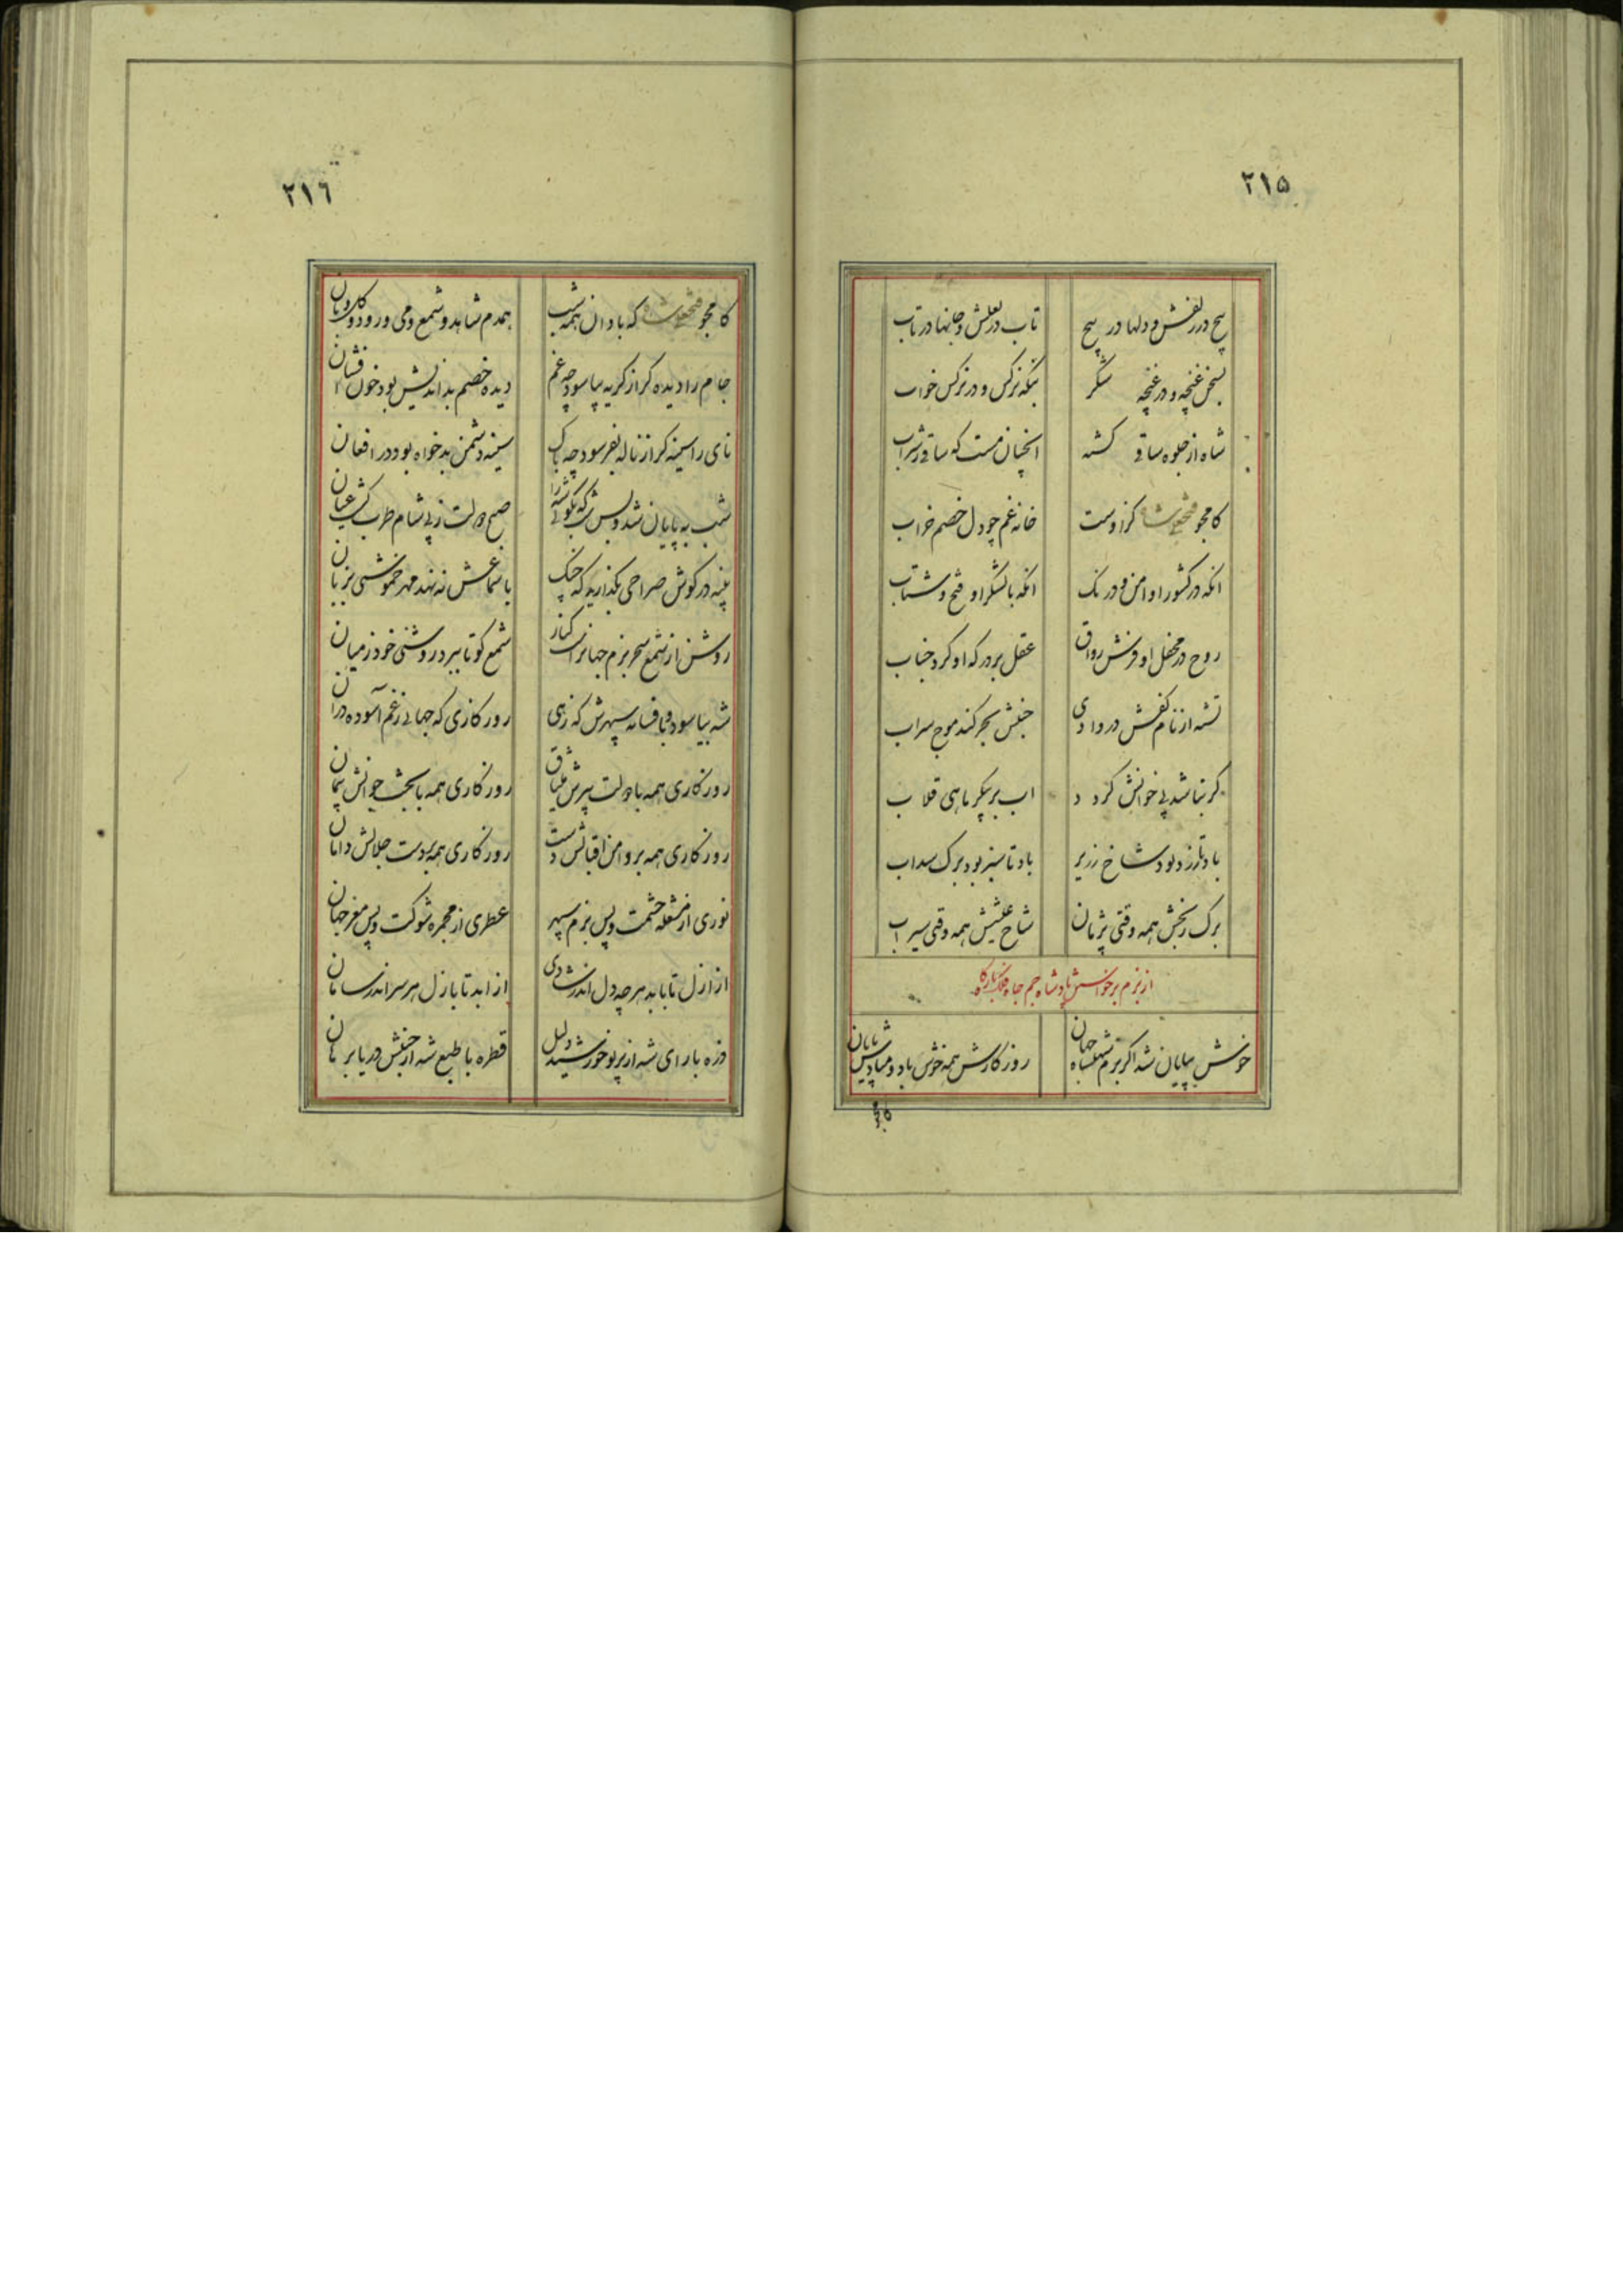 ٢١٥
پیچ در زلفش و دلها در پیچ تاب در لعلش و جانها در تاب
بسخن غنچه و در غنچه شکر بنکه نرکس و در نرکس خواب
شاه از جلوه ساقی کشته انچنان مست که ساقی ز شراب
کامجو فتحعلیشاه کزوست خانه غم چو دل خصم خراب
انکه در کشور او امن و درنک انکه با لشکر او فتح و شتاب
روح در محفل او فرش رواق عقل بر درکه او کرد جناب
تشنه از نام کفش در وادی جنبش بحر کند موج سراب
کر نباشد پی خوانش کردد اب بر پیکر ماهی قلاب
باد تا زرد بود شاخ زریر باد تا سبز بود برک سداب
برک رنجش همه وقتی پژمان شاخ عیشش همه وقتی سیراب
از بزم برخواستن پادشاه جم جاه فلک بارکاه
خوش بپایان شد اکر بزم شهنشاه جهان روزکارش همه خوش باد و مبادیش پایان
٢١٦
کامجو فتحعلیشاه که باد ان همه شب همدم شاهد و شمع و می و رود و
جام را دیده کر از کریه بیاسود چه غم دیده خصم بداندیش بود خون افشان
نای را سینه کر از ناله بفرسود چه باک سینه دشمن بدخواه بود در افغان
شب به پایان شد و بس صبح دولت ز پی شام طرب کشت عیان
پنبه در کوش صراحی بکذارید که چنک با سماعش نه نهد مهر خموشی بزبان
روشن از شمع سحر بزم جهانرا کنار شمع کو تا ببرد روشنی خود ز میان
شه بیاسود و با فسانه سپهرش که زهی روزکاری که جهانی ز غم آسوده دران
روزکاری همه با دولت پیرش میثاق روزکاری همه با بخت جوانش پیمان
روزکاری همه بر دامن اقبالش دست روزکاری همه بر دست جلالش دامان
نوری از مشعله حشمت و پس بزم سپهر عطری از مجمره شوکت و پس مغز جهان
از ازل تا بابد هرچه دل اندر شادی از ابد تا بازل هر سر اندر سامان
ذره با رای شه از پرتو خورشید دلیل قطره با طبع شه از جنبش دریا برهان